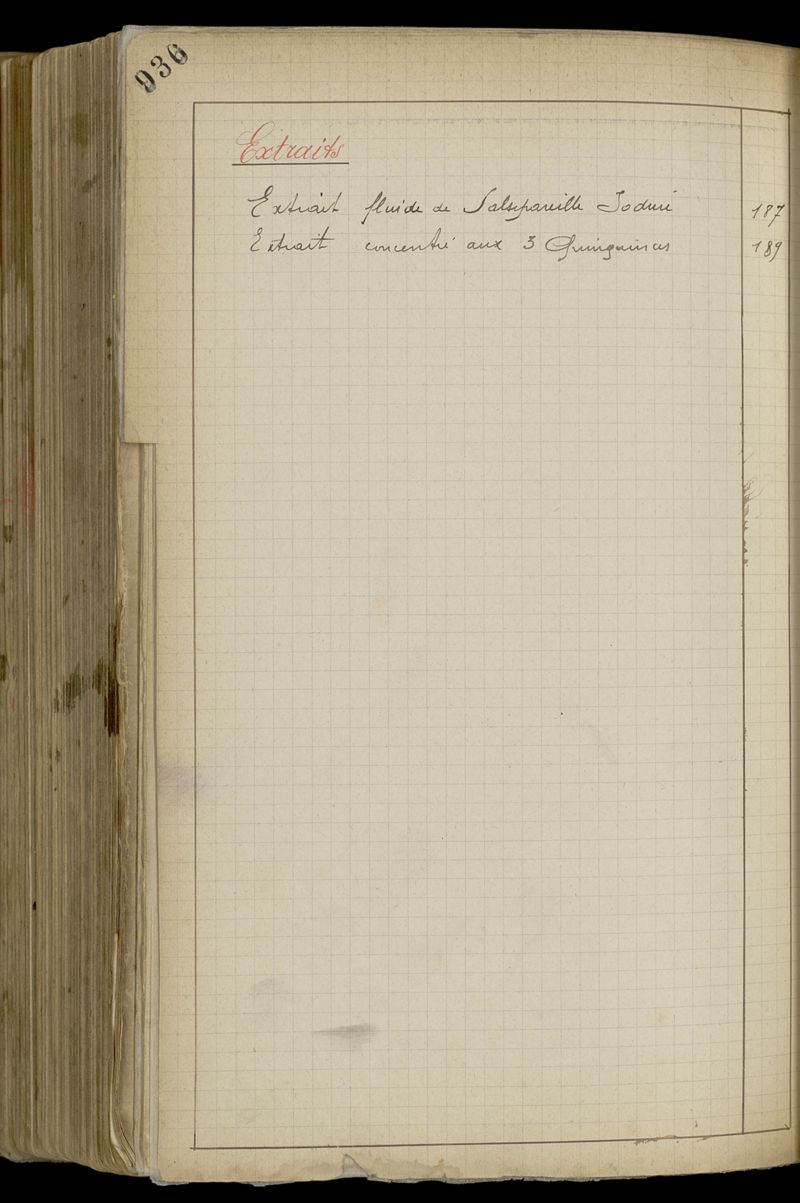 936
Extraits
Extrait fluide de Salsepareille Ioduré 187
Extrait concentré aux 3 Quinquinas 189